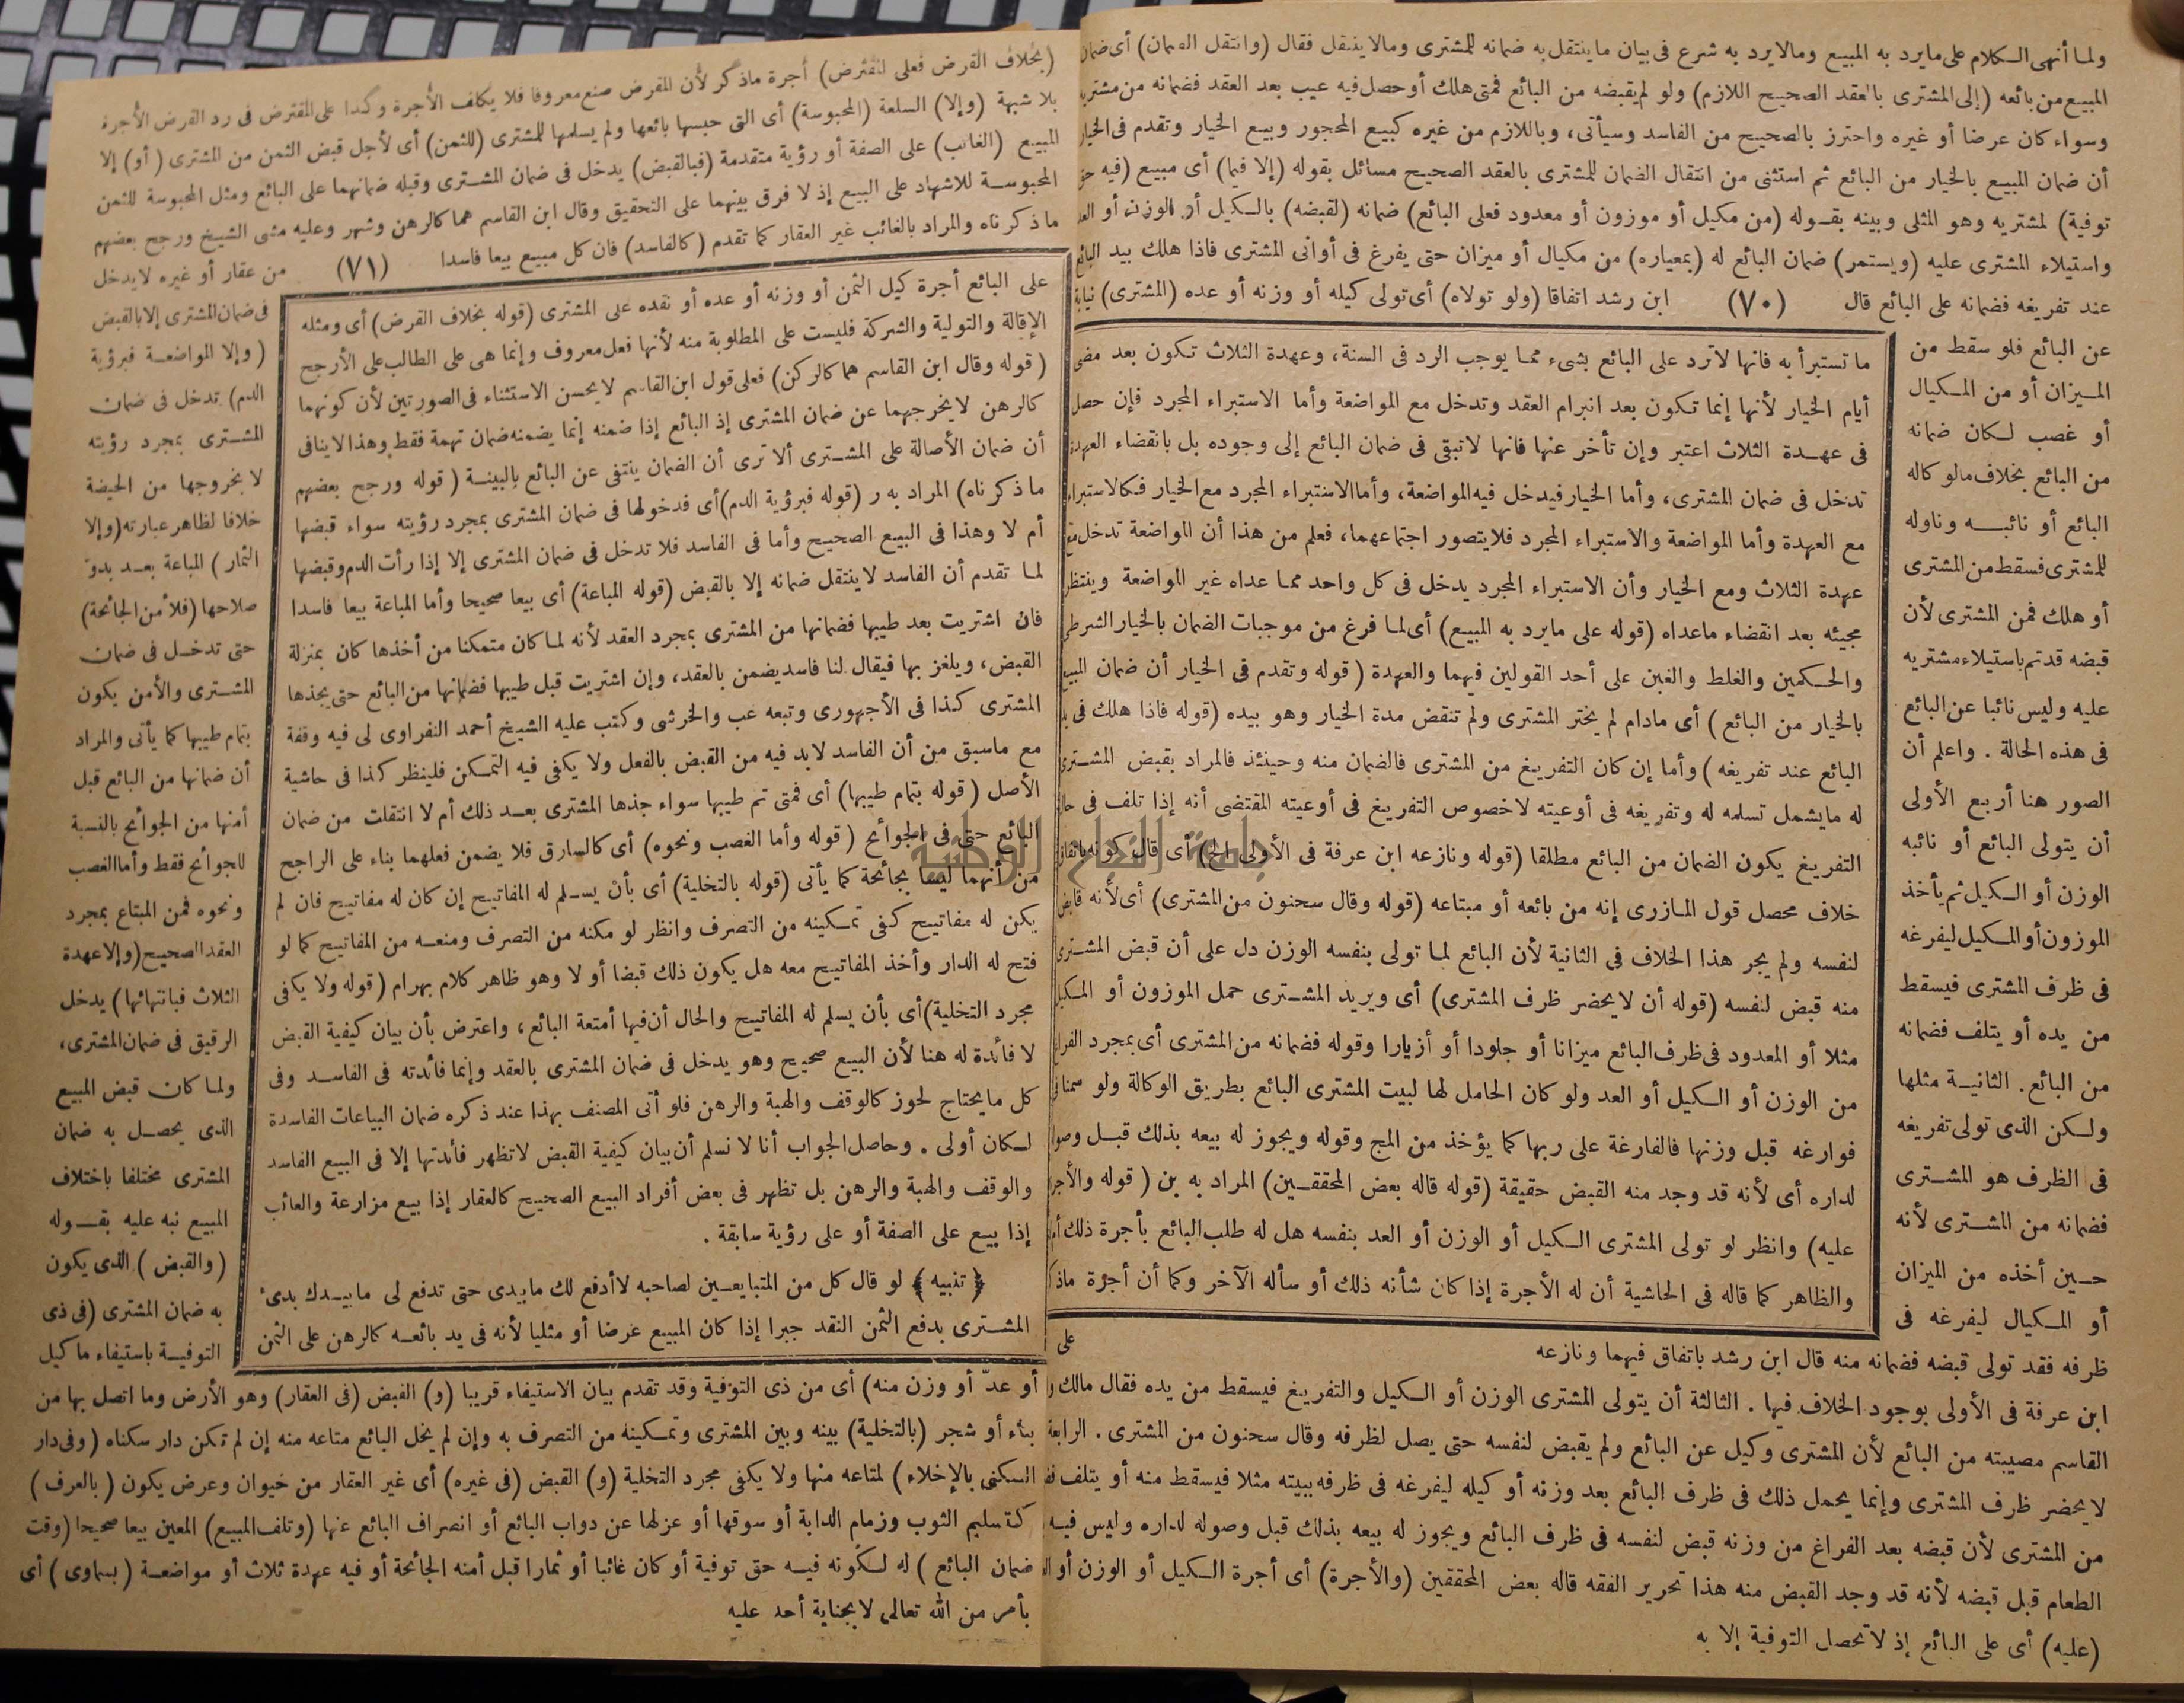 ولما أنهى الكلام على مايرد به المبيع ومالايرد به شرع فى بيان ماينتقل به ضمانه للمشترى ومالا ينتقل فقال (وانتقل الضمان) أى ضمان
المبيع من بائعه (إلى المشترى بالعقد الصحيح اللازم) ولو لم يقبضه من البائع فمتى هلك أوحصل فيه عيب بعد العقد فضمانه من مشتريه
وسواء كان عرضا أو غيره واحترز بالصحيح من الفاسد وسيأتى، وباللازم من غيره كبيع المحجور وبيع الخيار وتقدم فى الخيار
أن ضمان المبيع بالخيار من البائع ثم استثنى من انتقال الضمان للمشترى بالعقد الصحيح مسائل بقوله (إلا فيما) أى مبيع (فيه حق
توفية) لمشتريه وهو المثلى وبينه بقوله (من مكيل أو موزون أو معدود فعلى البائع) ضمانه (لقبضه) بالكيل أو الوزن أو العد
واستيلاء المشترى عليه (ويستمر) ضمان البائع له (بمعياره) من مكيال أو ميزان حتى يفرغ فى أوانى المشترى فاذا هلك بيد البائع
عند تفريغه فضمانه على البائع قال (٧٠) ابن رشد اتفاقا (ولو تولاه) أى تولى كيله أو وزنه أو عده (المشترى) نيابة
عن البائع فلو سقط من
الميزان أو من المكيال
أو غصب لكان ضمانه
من البائع بخلاف مالو كاله
البائع أو نائبه وناوله
للمشترى فسقط من المشترى
أو هلك فمن المشترى لأن
قبضه قد تم باستيلاء مشتريه
عليه وليس نائبا عن البائع
فى هذه الحالة . واعلم أن
الصور هنا أربع الأولى
أن يتولى البائع أو نائبه
الوزن أو الكيل ثم يأخذ
الموزون أو المكيل ليفرغه
فى ظرف المشترى فيسقط
من يده أو يتلف فضمانه
من البائع. الثانية مثلها
ولكن الذى تولى تفريغه
فى الظرف هو المشترى
فضمانه من المشترى لأنه
حين أخذه من الميزان
أو المكيال ليفرغه فى
ظرفه فقد تولى قبضه فضمانه منه قال ابن رشد باتفاق فيهما ونازعه
ابن عرفة فى الأولى بوجود الخلاف فيها . الثالثة أن يتولى المشترى الوزن أو الكيل والتفريغ فيسقط من يده فقال مالك و
القاسم مصيبته من البائع لأن المشترى وكيل عن البائع ولم يقبض لنفسه حتى يصل لظرفه وقال سحنون من المشترى . الرابعة
لايحضر ظرف المشترى وإنما يحمل ذلك فى ظرف البائع بعد وزنه أو كيله ليفرغه فى ظرفه ببيته مثلا فيسقط منه أو يتلف
من المشترى لأن قبضه بعد الفراغ من وزنه قبض لنفسه فى ظرف البائع ويجوز له بيعه بذلك قبل وصوله لداره وليس فيه
الطعام قبل قبضه لأنه قد وجد القبض منه هذا تحرير الفقه قاله بعض المحققين (والأجرة) أى أجرة الكيل أو الوزن أو
(عليه) أى على البائع إذ لاتحصل التوفية إلا به
ماتستبرأ به فانها لاترد على البائع بشىء مما يوجب الرد فى السنة، وعهدة الثلاث تكون بعد مضى
أيام الخيار لأنها إنما تكون بعد انبرام العقد وتدخل مع المواضعة وأما الاستبراء المجرد فإن حصل
فى عهدة الثلاث اعتبر وإن تأخر عنها فانها لاتبقى فى ضمان البائع إلى وجوده بل بانقضاء العهدة
تدخل فى ضمان المشترى، وأما الخيار فيدخل فيه المواضعة، وأما الاستبراء المجرد مع الخيار فكالاستبراء
مع العهدة وأما المواضعة والاستبراء المجرد فلا يتصور اجتماعهما، فعلم من هذا أن المواضعة تدخل مع
عهدة الثلاث ومع الخيار وأن الاستبراء المجرد يدخل فى كل واحد مما عداه غير المواضعة وينتظر
مجيئه بعد انقضاء ماعداه (قوله على مايرد به المبيع) أى لما فرغ من موجبات الضمان بالخيار الشرطى
والحكمين والغلط والغبن على أحد القولين فيهما والعهدة (قوله وتقدم فى الخيار أن ضمان المبيع
بالخيار من البائع) أى مادام لم يختر المشترى ولم تنقض مدة الخيار وهو بيده (قوله فاذا هلك فى يد
البائع عند تفريغه) وأما إن كان التفريغ من المشترى فالضمان منه وحينئذ فالمراد بقبض المشترى
له مايشمل تسلمه له وتفريغه فى أوعيته لاخصوص التفريغ فى أوعيته المقتضى أنه إذا تلف فى حال
التفريغ يكون الضمان من البائع مطلقا (قوله ونازعه ابن عرفة فى الأولى الخ) أى قال كونه باتفاق
خلاف محصل قول المازرى إنه من بائعه أو مبتاعه (قوله وقال سحنون من المشترى) أى لأنه قابض
لنفسه ولم يجر هذا الخلاف فى الثانية لأن البائع لما تولى بنفسه الوزن دل على أن قبض المشترى
منه قبض لنفسه (قوله أن لايحضر ظرف المشترى) أى ويريد المشترى حمل الموزون أو المكيل
مثلا أو المعدود فى ظرف البائع ميزانا أو جلودا أو أزيارا وقوله فضمانه من المشترى أى بمجرد الفراغ
من الوزن أو الكيل أو العد ولو كان الحامل لها لبيت المشترى البائع بطريق الوكالة ولو سمنا فى
فوارغه قبل وزنها فالفارغة على ربها كما يؤخذ من المج وقوله ويجوز له بيعه بذلك قبل وصوله
لداره أى لأنه قد وجد منه القبض حقيقة (قوله قاله بعض المحققين) المراد به بن (قوله والأجرة
عليه) وانظر لو تولى المشترى الكيل أو الوزن أو العد بنفسه هل له طلب البائع بأجرة ذلك أم
والظاهر كما قاله فى الحاشية أن له الأجرة إذا كان شأنه ذلك أو سأله الآخر وكما أن أجرة ماذكر
على
(بخلاف القرض فعلى المقترض) أجرة ماذكر لأن المقرض صنع معروفا فلا يكلف الأجرة وكذا على المقترض فى رد القرض الأجرة
بلا شبهة (وإلا) السلعة (المحبوسة) أى التى حبسها بائعها ولم يسلمها للمشترى (للثمن) أى لأجل قبض الثمن من المشترى (أو) إلا
المبيع (الغائب) على الصفة أو رؤية متقدمة (فبالقبض) يدخل فى ضمان المشترى وقبله ضمانهما على البائع ومثل المحبوسة للثمن
المحبوسة للاشهاد على البيع إذ لا فرق بينهما على التحقيق وقال ابن القاسم هما كالرهن وشهر وعليه مشى الشيخ ورجح بعضهم
ماذكرناه والمراد بالغائب غير العقار كما تقدم (كالفاسد) فان كل مبيع بيعا فاسدا (٧١) من عقار أو غيره لايدخل
فى ضمان المشترى إلا بالقبض
(وإلا المواضعة فبرؤية
الدم) تدخل فى ضمان
المشترى بمجرد رؤيته
لا بخروجها من الحيضة
خلافا لظاهر عبارته (وإلا
الثمار) المباعة بعد بدو
صلاحها (فلأمن الجائحة)
حتى تدخل فى ضمان
المشترى والأمن يكون
بتمام طيبها كما يأتى والمراد
أن ضمانها من البائع قبل
أمنها من الجوائح بالنسبة
للجوائح فقط وأما الغصب
ونحوه فمن المبتاع بمجرد
العقد الصحيح (وإلا عهدة
الثلاث فبانتهائها) يدخل
الرقيق فى ضمان المشترى،
ولما كان قبض المبيع
الذى يحصل به ضمان
المشترى مختلفا باختلاف
المبيع نبه عليه بقوله
(والقبض) الذى يكون
به ضمان المشترى (فى ذى
التوفية باستيفاء ما كيل
أو عدّ أو وزن منه) أى من ذى التوفية وقد تقدم بيان الاستيفاء قريبا (و) القبض (فى العقار) وهو الأرض وما اتصل بها من
بناء أو شجر (بالتخلية) بينه وبين المشترى وتمكينه من التصرف به وإن لم يخل البائع متاعه منه إن لم تكن دار سكناه (وفى دار
السكنى بالإخلاء) لمتاعه منها ولا يكفى مجرد التخلية (و) القبض (فى غيره) أى غير العقار من حيوان وعرض يكون (بالعرف)
كتسليم الثوب وزمام الدابة أو سوقها أو عزلها عن دواب البائع أو انصراف البائع عنها (وتلف المبيع) المعين بيعا صحيحا (وقت
ضمان البائع) له لكونه فيه حق توفية أو كان غائبا أو ثمارا قبل أمنه الجائحة أو فيه عهدة ثلاث أو مواضعة (بسماوى) أى
بأمر من الله تعالى لا بجناية أحد عليه
على البائع أجرة كيل الثمن أو وزنه أو عده أو نقده على المشترى (قوله بخلاف القرض) أى ومثله
الإقالة والتولية والشركة فليست على المطلوبة منه لأنها فعل معروف وإنما هى على الطالب على الأرجح
(قوله وقال ابن القاسم هما كالركن) فعلى قول ابن القاسم لايحسن الاستثناء فى الصورتين لأن كونهما
كالرهن لايخرجهما عن ضمان المشترى إذ البائع إذا ضمنه إنما يضمنه ضمان تهمة فقط وهذا لاينافى
أن ضمان الأصالة على المشترى ألا ترى أن الضمان ينتفى عن البائع بالبينة (قوله ورجح بعضهم
ماذكرناه) المراد به ر (قوله فبرؤية الدم) أى فدخولها فى ضمان المشترى بمجرد رؤيته سواء قبضها
أم لا وهذا فى البيع الصحيح وأما فى الفاسد فلا تدخل فى ضمان المشترى إلا إذا رأت الدم وقبضها
لما تقدم أن الفاسد لاينتقل ضمانه إلا بالقبض (قوله المباعة) أى بيعا صحيحا وأما المباعة بيعا فاسدا
فان اشتريت بعد طيبها فضمانها من المشترى بمجرد العقد لأنه لما كان متمكنا من أخذها كان بمنزلة
القبض، ويلغز بها فيقال لنا فاسد يضمن بالعقد، وإن اشتريت قبل طيبها فضمانها من البائع حتى يجذها
المشترى كذا فى الأجهورى وتبعه عب والخرشى وكتب عليه الشيخ أحمد النفراوى لى فيه وقفة
مع ماسبق من أن الفاسد لابد فيه من القبض بالفعل ولا يكفى فيه التمكن فلينظر كذا فى حاشية
الأصل (قوله بتمام طيبها) أى فمتى تم طيبها سواء جذها المشترى بعد ذلك أم لا انتقلت من ضمان
البائع حتى فى الجوائح (قوله وأما الغصب ونحوه) أى كالسارق فلا يضمن فعلهما بناء على الراجح
من أنهما ليسا بجائحة كما يأتى (قوله بالتخلية) أى بأن يسلم له المفاتيح إن كان له مفاتيح فان لم
يكن له مفاتيح كفى تمكينه من التصرف وانظر لو مكنه من التصرف ومنعه من المفاتيح كما لو
فتح له الدار وأخذ المفاتيح معه هل يكون ذلك قبضا أو لا وهو ظاهر كلام بهرام (قوله ولا يكفى
مجرد التخلية) أى بأن يسلم له المفاتيح والحال أن فيها أمتعة البائع، واعترض بأن بيان كيفية القبض
لا فائدة له هنا لأن البيع صحيح وهو يدخل فى ضمان المشترى بالعقد وإنما فائدته فى الفاسد وفى
كل مايحتاج لحوز كالوقف والهبة والرهن فلو أتى المصنف بهذا عند ذكره ضمان البياعات الفاسدة
لكان أولى . وحاصل الجواب أنا لا نسلم أن بيان كيفية القبض لاتظهر فائدتها إلا فى البيع الفاسد
والوقف والهبة والرهن بل تظهر فى بعض أفراد البيع الصحيح كالعقار إذا بيع مزارعة والغائب
إذا بيع على الصفة أو على رؤية سابقة .
﴿تنبيه﴾ لو قال كل من المتبايعين لصاحبه لاأدفع لك مابيدى حتى تدفع لى مابيدك بدىء
المشترى بدفع الثمن النقد جبرا إذا كان المبيع عرضا أو مثليا لأنه فى يد بائعه كالرهن على الثمن
جامعة النجاح الوطنية